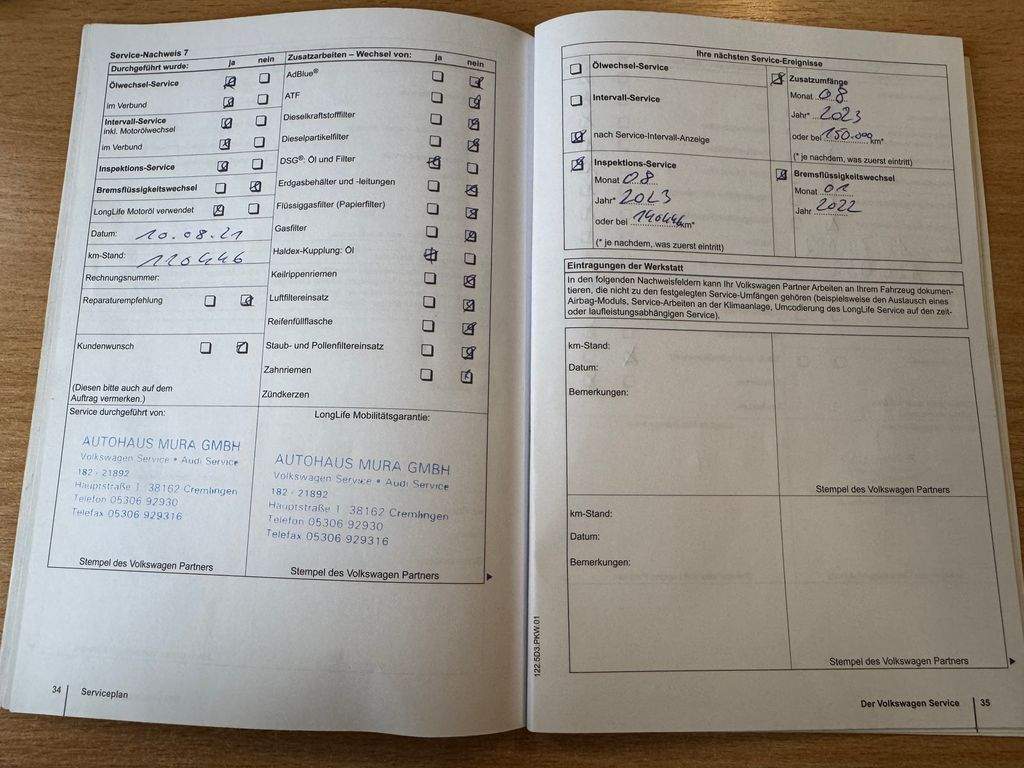 Service-Nachweis 7
Durchgeführt wurde: ja nein
Ölwechsel-Service
im Verbund
Intervall-Service
inkl. Motorölwechsel
im Verbund
Inspektions-Service
Bremsflüssigkeitswechsel
LongLife Motoröl verwendet
Datum: 10.08.21
km-Stand: 110446
Rechnungsnummer:
Reparaturempfehlung
Kundenwunsch
(Diesen bitte auch auf dem
Auftrag vermerken.)
Zusatzarbeiten – Wechsel von: ja nein
AdBlue®
ATF
Dieselkraftstofffilter
Dieselpartikelfilter
DSG®: Öl und Filter
Erdgasbehälter und -leitungen
Flüssiggasfilter (Papierfilter)
Gasfilter
Haldex-Kupplung: Öl
Keilrippenriemen
Luftfiltereinsatz
Reifenfüllflasche
Staub- und Pollenfiltereinsatz
Zahnriemen
Zündkerzen
Service durchgeführt von:
AUTOHAUS MURA GMBH
Volkswagen Service • Audi Service
182 - 21892
Hauptstraße 1 38162 Cremlingen
Telefon 05306 92930
Telefax 05306 929316
Stempel des Volkswagen Partners
LongLife Mobilitätsgarantie:
AUTOHAUS MURA GMBH
Volkswagen Service • Audi Service
182 - 21892
Hauptstraße 1 38162 Cremlingen
Telefon 05306 92930
Telefax 05306 929316
Stempel des Volkswagen Partners
34 Serviceplan
Ihre nächsten Service-Ereignisse
Ölwechsel-Service
Intervall-Service
nach Service-Intervall-Anzeige
Zusatzumfänge
Monat 08
Jahr* 2023
oder bei 150.000 km*
(* je nachdem, was zuerst eintritt)
Inspektions-Service
Monat 08
Jahr* 2023
oder bei 140446 km*
(* je nachdem, was zuerst eintritt)
Bremsflüssigkeitswechsel
Monat 01
Jahr 2022
Eintragungen der Werkstatt
In den folgenden Nachweisfeldern kann Ihr Volkswagen Partner Arbeiten an Ihrem Fahrzeug dokumen-
tieren, die nicht zu den festgelegten Service-Umfängen gehören (beispielsweise den Austausch eines
Airbag-Moduls, Service-Arbeiten an der Klimaanlage, Umcodierung des LongLife Service auf den zeit-
oder laufleistungsabhängigen Service).
km-Stand:
Datum:
Bemerkungen:
Stempel des Volkswagen Partners
km-Stand:
Datum:
Bemerkungen:
Stempel des Volkswagen Partners
122.5D3.PKW.01
Der Volkswagen Service 35